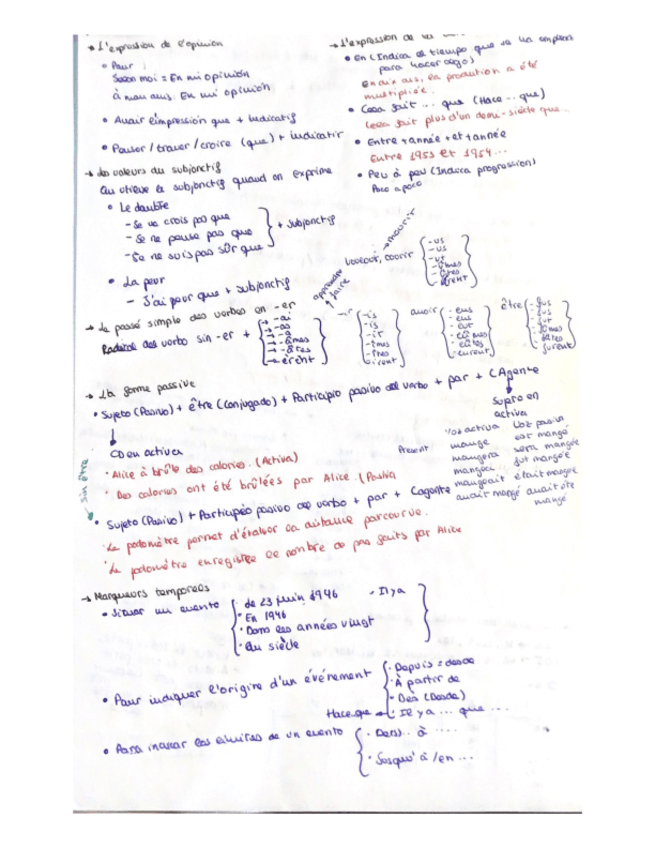 → L'expression de l'opinion
• Pour
Selon moi = En mi opinión
à mon avis: En mi opinión
• Avoir l'impression que + Indicatif
• Penser / trouver / croire (que) + Indicatif
→ L'expression de
• En (Indica el tiempo que se ha
para hacer algo)
En dix ans, la production a été
multipliée.
• Cela fait ... que (Hace ... que)
Cela fait plus d'un demi-siècle que...
• Entre + année + et + année
Entre 1953 et 1954...
• Peu à peu (Indica progression)
Poco a poco
→ Les valeurs du subjonctif
On utilise le subjonctif quand on exprime
• Le doute
- Je ne crois pas que
- Je ne pense pas que
- Je ne suis pas sûr que
+ subjonctif
• La peur
- J'ai peur que + subjonctif
→ Le passé simple des verbes en -er
Radical del verbo sin -er +
→ -ai
→ -as
→ -a
→ -âmes
→ -âtes
→ -èrent
apprendre
faire
-ir
-is
-is
-it
-îmes
-îtes
-irent
vouloir, courir
→ mourir
-us
-us
-ut
-ûmes
-ûtes
-urent
avoir
-eus
-eus
-eut
-eûmes
-eûtes
-eurent
être
-fus
-fus
-fut
-fûmes
-fûtes
-furent
→ La forme passive
• Sujeto (Pasivo) + être (conjugado) + Participio pasivo del verbo + par + CAgente
CD en activa
Sujeto en
activa
• Alice à brûlé des calories. (Activa)
• Des calories ont été brûlées par Alice. (Pasiva
Voz activa Voz pasiva
Présent mange est mangé
mangera sera mangée
mangea fut mangée
mangeait était mangée
avait mangé avait été
mangé
sin être
• Sujeto (Pasivo) + Participio pasivo del verbo + par + Cagente
• Le podomètre permet d'évaluer la distance parcourue.
• Le podomètre enregistre le nombre de pas faits par Alice
→ Marqueurs temporels
• Situar un evento
• de 23 juin 1946
• Il y a
• En 1946
• Dans les années vingt
• Au siècle
• Pour indiquer l'origine d'un événement
• Depuis = desde
• À partir de
• Dès (Desde)
Hace que ← • Il y a ... que ...
• Para indicar los límites de un evento
• De ... à ....
• Jusqu'à / en ...